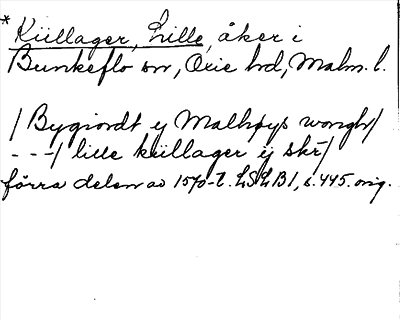 * Küllager, Lille, åker i
Bunkeflo sn, Oxie hd, Malm. l.
/ Bygiordt ej Malhøys wongh/
---/ lille küllager ij skr̄/
förra delen av 1570-t. LSLB1, s. 445. orig.